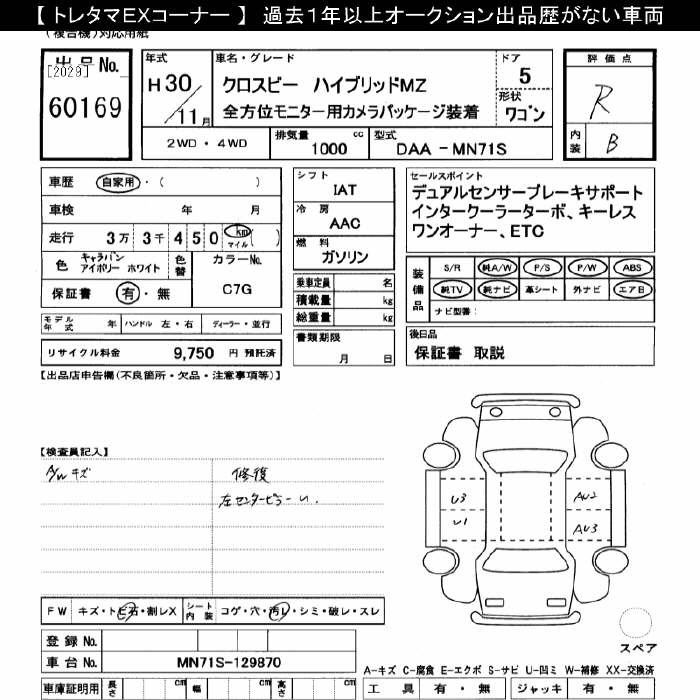 【 トレタマEXコーナー 】 過去1年以上オークション出品歴がない車両
(複合機)対応用紙
出品No.
[2029]
60169
年式
H 30 / 11月
車名・グレード
クロスビー ハイブリッドMZ
全方位モニター用カメラパッケージ装着
ドア
5
形状
ワゴン
2WD ・ 4WD
排気量 1000 cc
型式 DAA - MN71S
評価点
R
内装
B
車歴 自家用・( )
車検 年 月
走行 3万 3千 450 km マイル ( )
色 キャラバン アイボリー ホワイト 色替
カラーNo. C7G
保証書 有・無
モデル年式 年 ハンドル 左・右 ディーラー・並行
リサイクル料金 9,750 円 預託済
シフト
IAT
冷房
AAC
燃料
ガソリン
乗車定員 名
積載量 kg
総重量 kg
書類期限
月 日
セールスポイント
デュアルセンサーブレーキサポート
インタークーラーターボ、キーレス
ワンオーナー、ETC
装備品
S/R 純A/W P/S P/W ABS
純TV 純ナビ 革シート 外ナビ エアB
ナビ型番:
後日品
保証書 取説
【出品店申告欄(不良箇所・欠品・注意事項等)】
【検査員記入】
A/W キズ
修復
左センターピラーU.
U3
U1
AU2
AU3
FW キズ・トビ石・割レX
シート内装 コゲ・穴・汚レ・シミ・破レ・スレ
登録No.
車台No. MN71S-129870
車庫証明用 長さ cm 幅 cm 高さ cm
スペア
A-キズ C-腐食 E-エクボ S-サビ U-凹ミ W-補修 XX-交換済
工具 有・無 ジャッキ 有・無